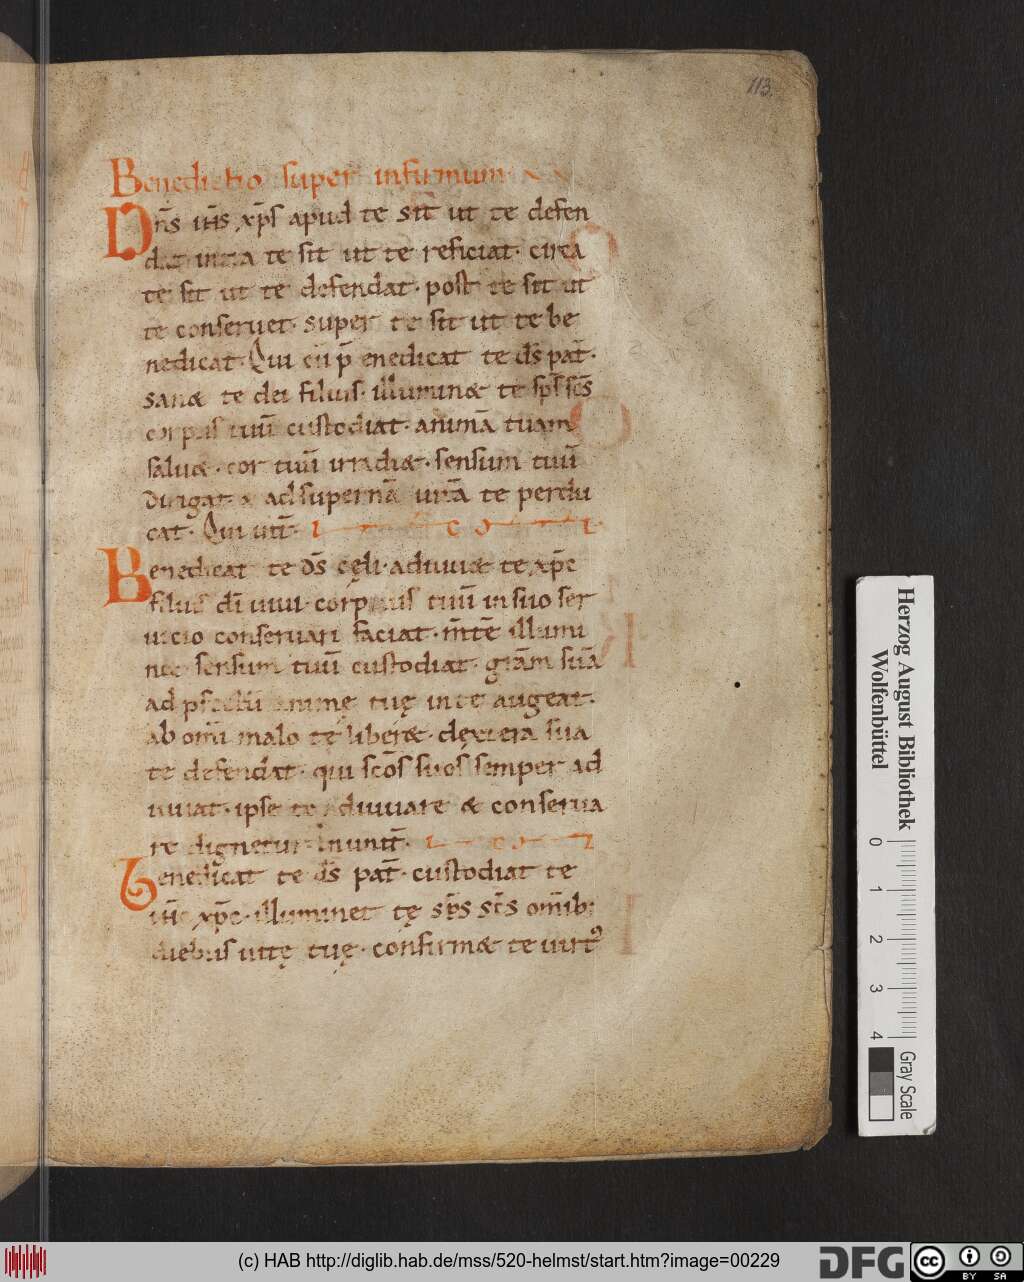 113
Benedictio super infirmum
Dn̄s ih̄s xp̄s apud te sit ut te defen
dat intra te sit ut te reficiat· circa
te sit ut te defendat· post te sit ut
te conseruet· super te sit ut te be
nedicat· Qui cū p̄ enedicat te ds̄ pat̄·
sanæ te dei filius· illuminæ te sp̄s scs̄
corpus tuū custodiat· animā tuam
saluæ· cor tuū irradiæ· sensum tuū
dirigat & ad supernā uitā te perdu
cat· Qui uiū
Benedicat te ds̄ cęli· adiuuæ te xp̄c
filius dī uiui· corpus tuū in suo ser
uicio conseruari faciat· m̄tē illumi
næ sensum tuū custodiat· gr̄am suā
ad animę tuę in te augeat·
ab om̄i malo tę liberæ· dextera sua
te defendat· qui sc̄os suos semper ad
iuuat· ipse te adiuuare & conserua
re dignetur In unit̄·
Benedicat te ds̄ pat̄· custodiat te
ih̄c xp̄c· illuminet tę sp̄s sc̄s om̄ib;
diebus uitę tuę· confirmæ te uirtꝰ
Herzog August Bibliothek
Wolfenbüttel
0 1 2 3 4
Gray Scale
(c) HAB http://diglib.hab.de/mss/520-helmst/start.htm?image=00229
DFG
cc BY SA